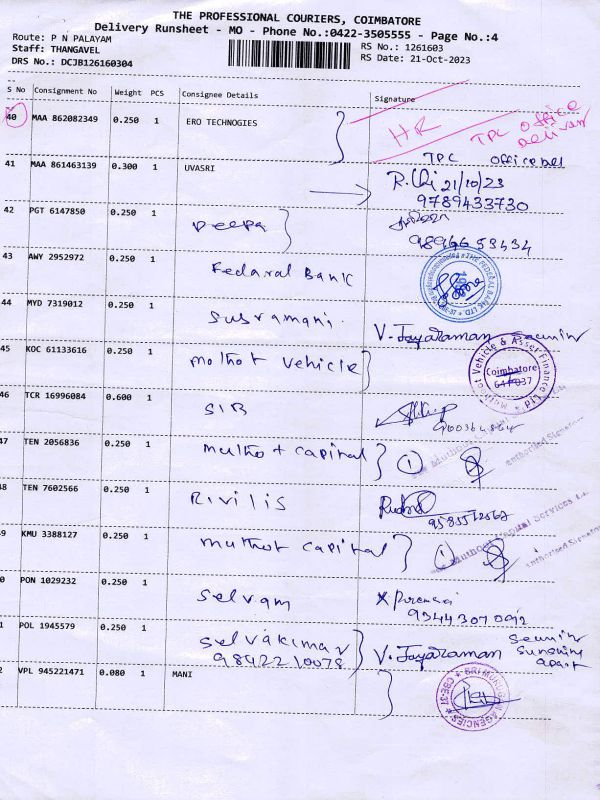 THE PROFESSIONAL COURIERS, COIMBATORE
Delivery Runsheet - MO - Phone No.:0422-3505555 - Page No.:4
Route: P N PALAYAM
Staff: THANGAVEL
DRS No.: DCJB126160304
RS No.: 1261603
RS Date: 21-Oct-2023
S No Consignment No Weight PCS Consignee Details Signature
40 MAA 862082349 0.250 1 ERO TECHNOGIES HR TPC office Delivery
TPC office
41 MAA 861463139 0.300 1 UVASRI 21/10/23
9789433730
42 PGT 6147850 0.250 1 Deepa
43 AWY 2952972 0.250 1 Fedaral Bank
44 MYD 7319012 0.250 1 Subramani V. Jayaraman
45 KOC 61133616 0.250 1 Mothot Vehicle Vehicle & Asset Finance Ltd Coimbatore 641 037
46 TCR 16996084 0.600 1 SIB
47 TEN 2056836 0.250 1 Muthot capital 1 Authorised Signatory
8 TEN 7602566 0.250 1 Rivilis
9 KMU 3388127 0.250 1 Muthot capital 1 Muthoot Capital Services Authorised Signatory
0 PON 1029232 0.250 1 Selvam
1 POL 1945579 0.250 1 Selvakimar V. Jayaraman
9842210078
2 VPL 945221471 0.080 1 MANI AGENCIES